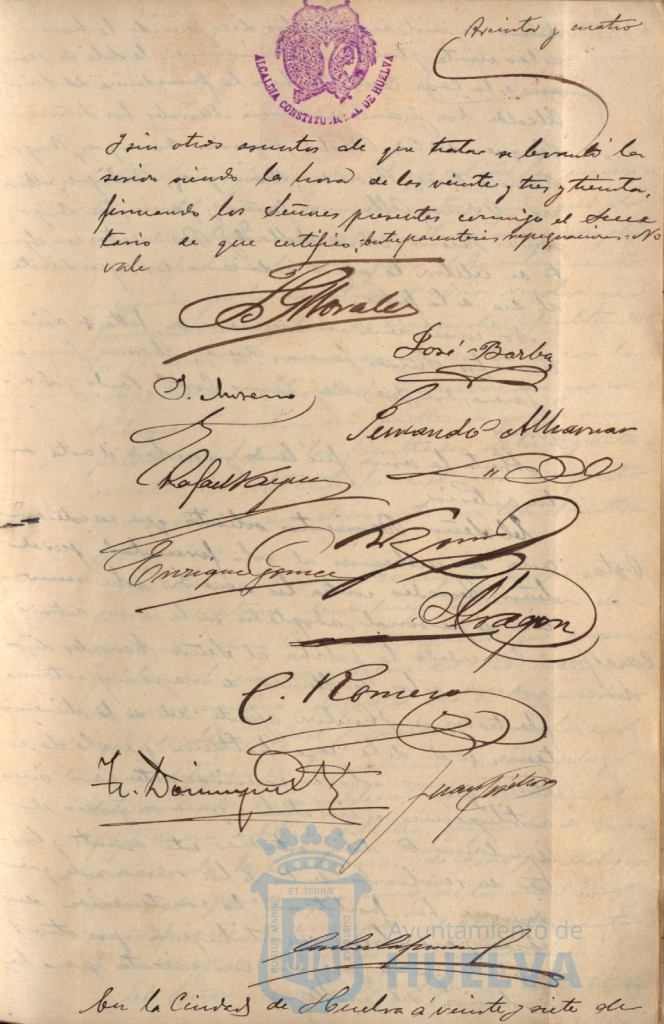 Treinta y cuatro
ALCALDIA CONSTITUCIONAL DE HUELVA
Y sin otros asuntos de que tratar se levantó la
sesion siendo la hora de las veinte y tres y treinta,
firmando los Señores presentes conmigo el Secre
tario de que certifico. Entreparentesis = No
vale
Morales
José Barba
J. Moreno
Fernando
Rafael
Enrique Gomez
Aragon
C. Romero
Dominguez
Juan
ET TERRÆ
PORTUS MARIS
CUSTODIA
Ayuntamiento de
HUELVA
En la Ciudad de Huelva á veinte y siete de